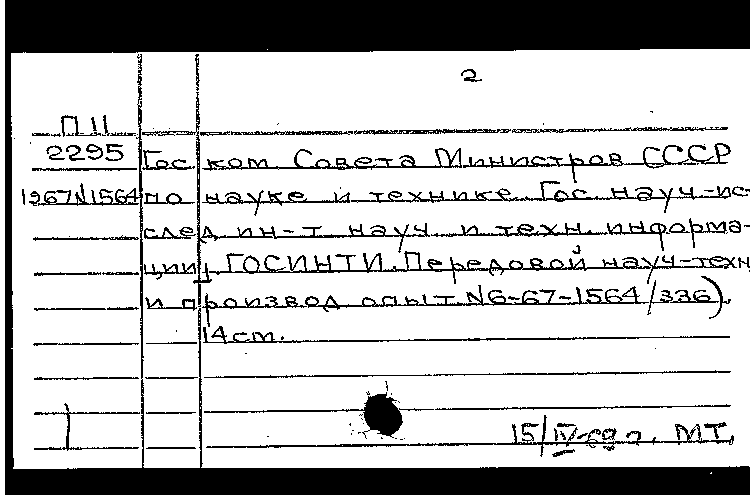 2
П 11
2295 Гос ком Совета Министров СССР
1967 N1564 по науке и технике Гос науч-ис-
след ин-т науч. и техн. информа-
ции, ГОСИНТИ. Передовой науч-техн
и производ опыт N6-67-1564/336).
14 см.
15/IV-69 г. МТ.